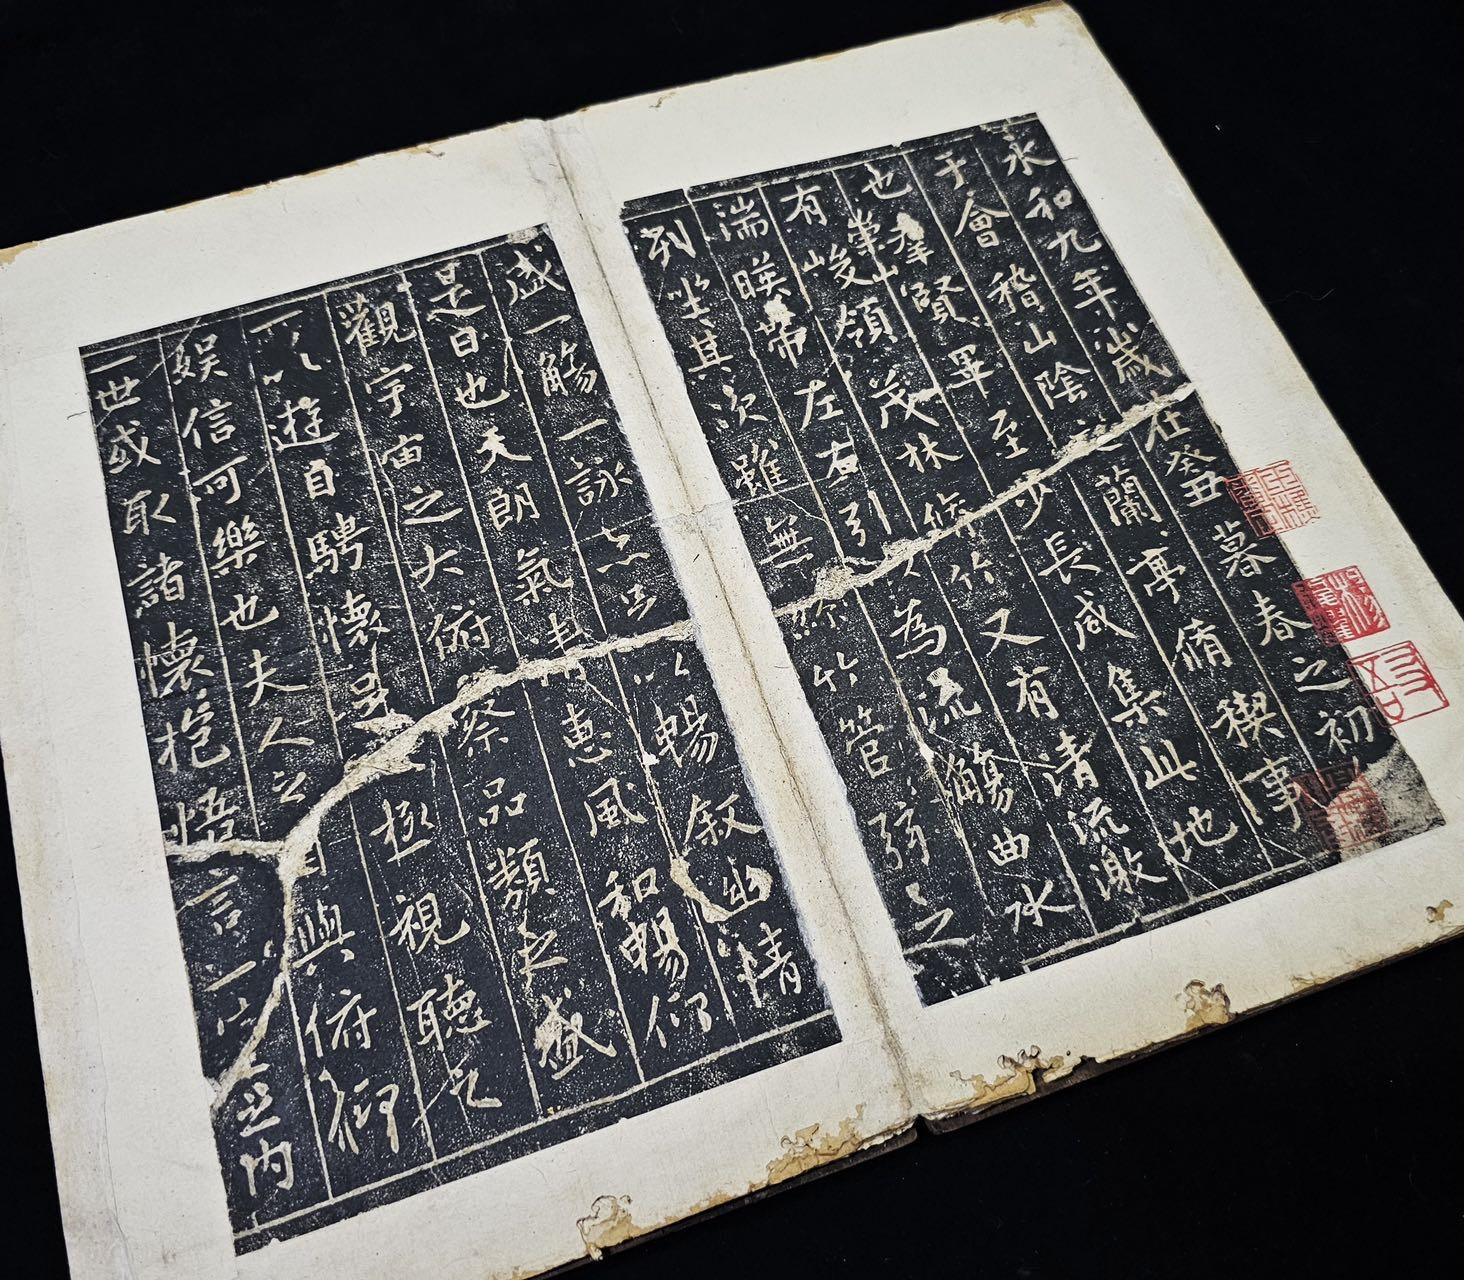 永和九年歲在癸丑暮春之初
于會稽山陰之蘭亭脩稧事
也羣賢畢至少長咸集此地
有崇山峻領茂林脩竹又有清流激
湍暎帶左右引以為流觴曲水
列坐其次雖無絲竹管弦之
盛一觴一詠亦足以暢叙幽情
是日也天朗氣清惠風和暢仰
觀宇宙之大俯察品類之盛
所以遊目騁懷足極視聽之
娛信可樂也夫人之相與俯仰
一世或取諸懷抱悟言一室之內